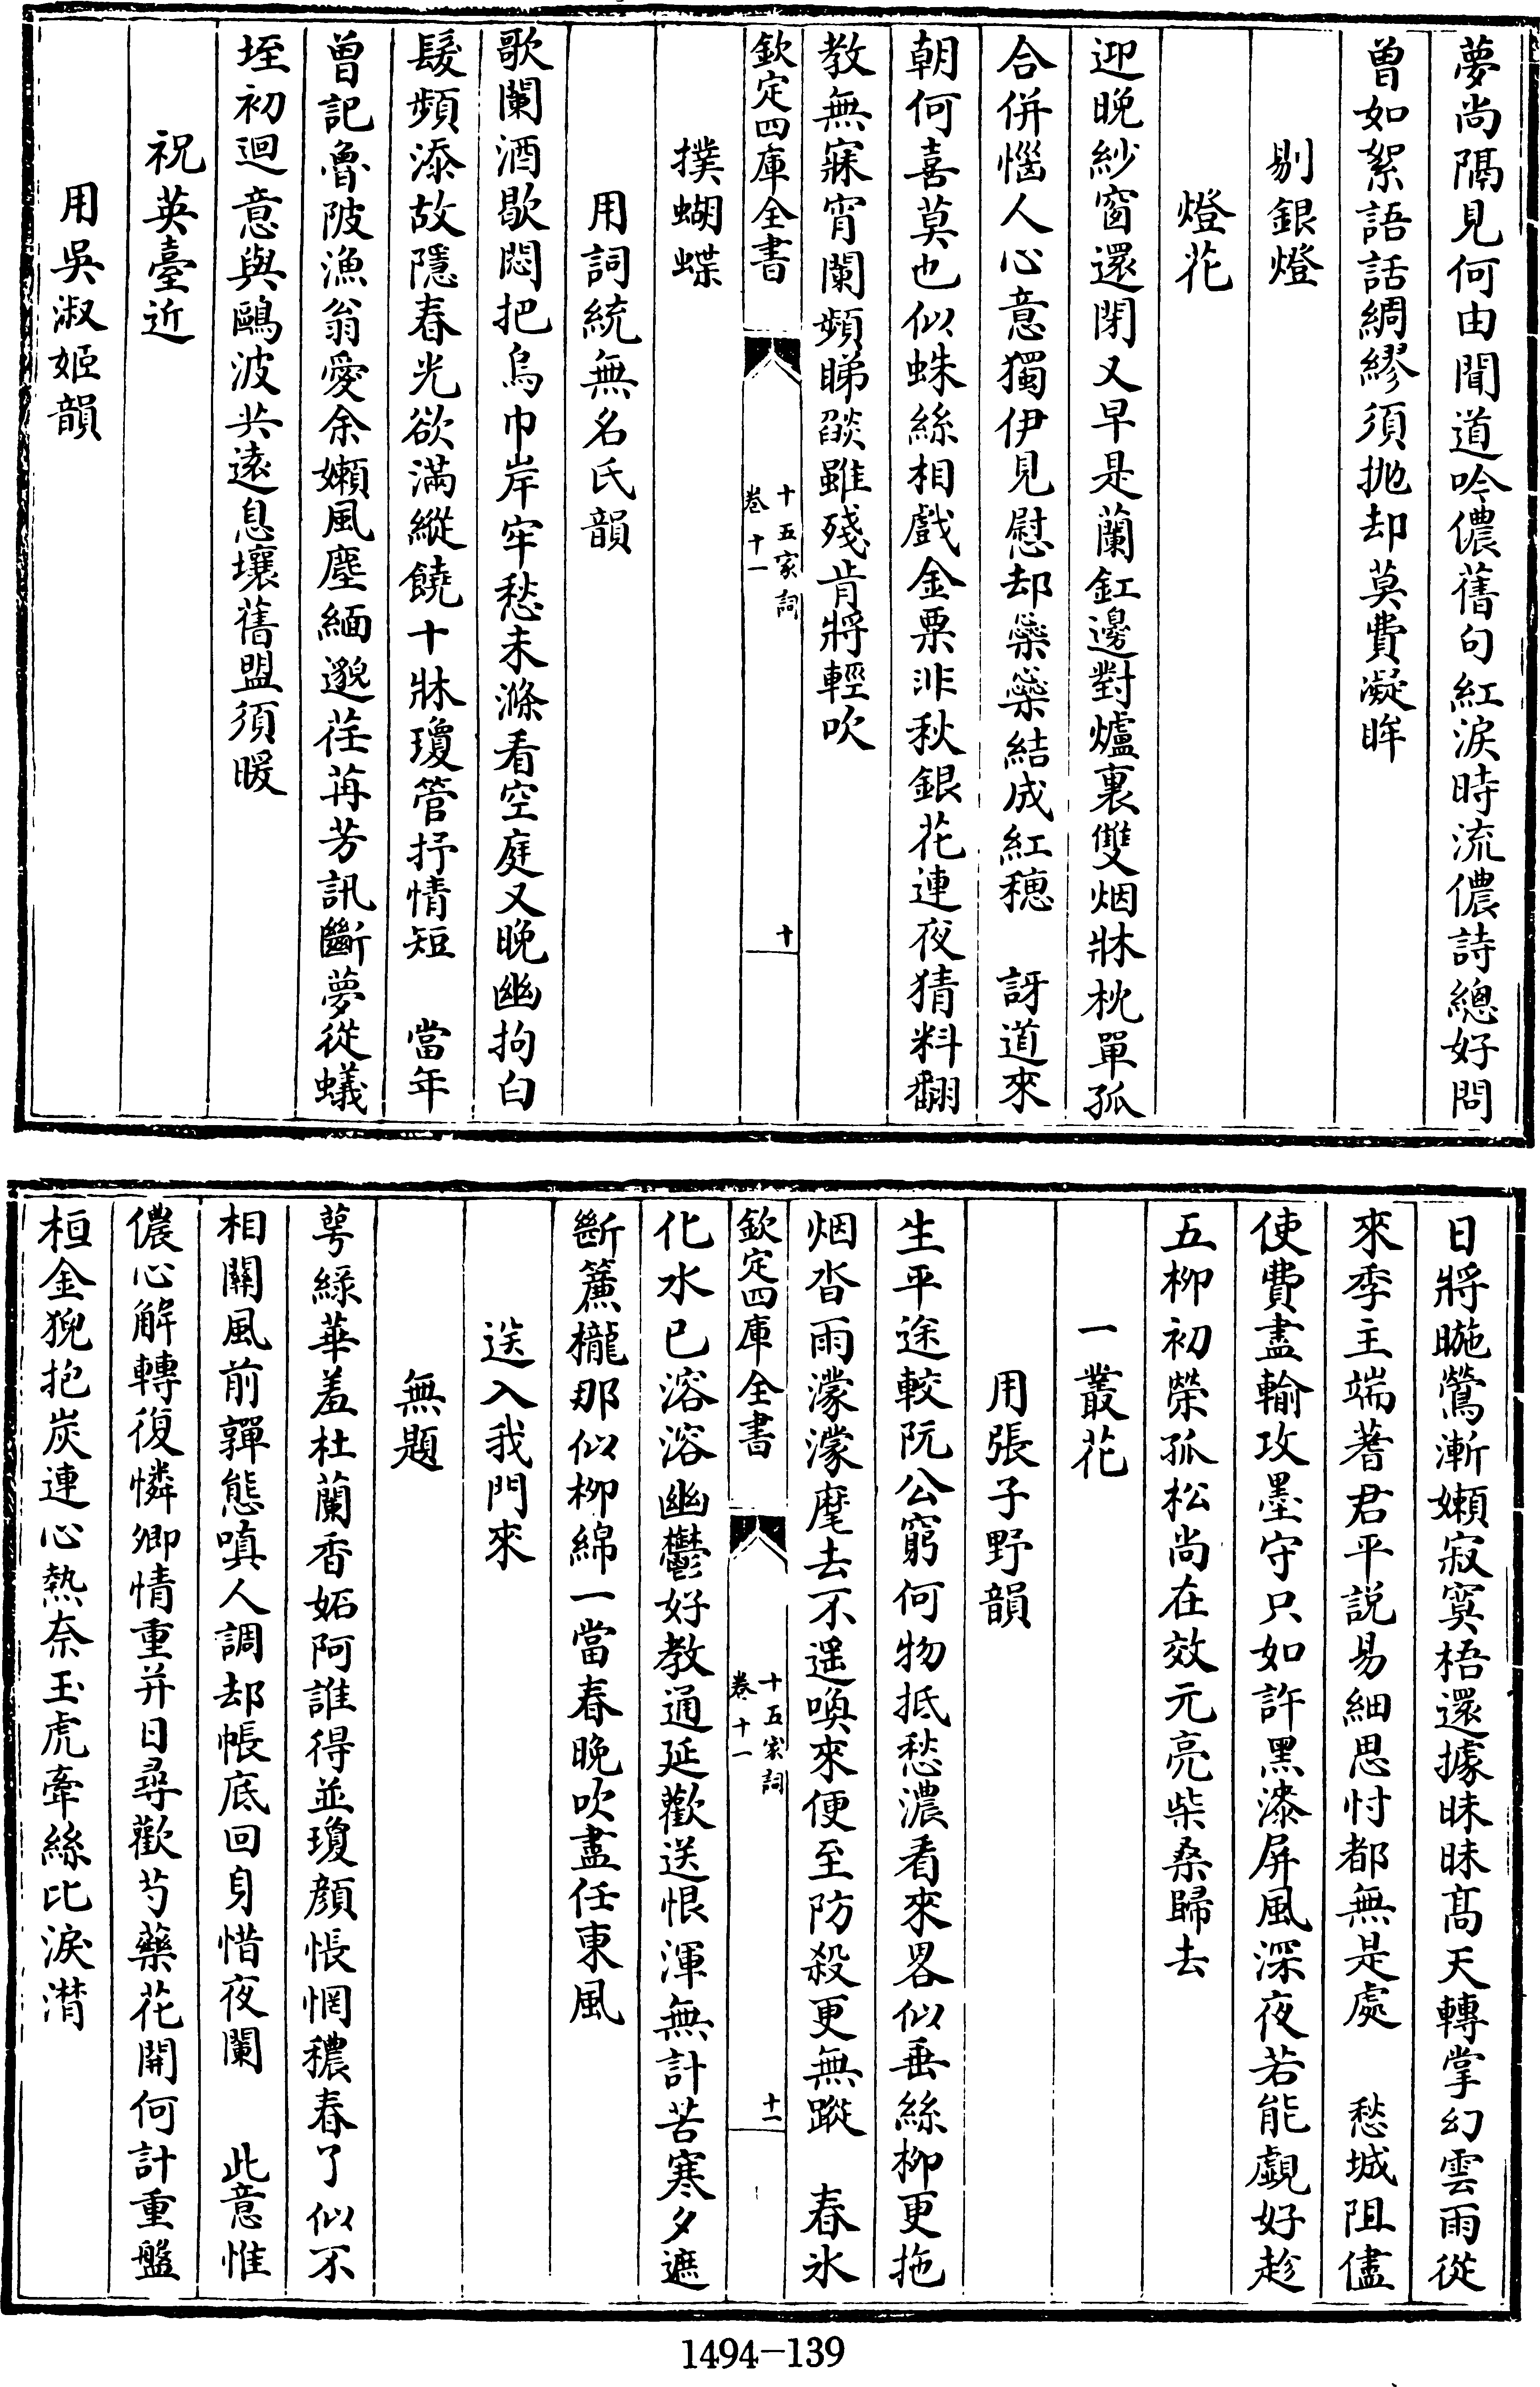 夢尚隔見何由聞道吟儂舊句紅淚時流儂詩總好問
曾如絮語話綢繆須抛却莫費凝眸
剔銀燈
燈花
迎晚紗窗還閉又早是蘭釭邊對爐裏雙烟牀枕單孤
合併惱人心意獨伊見慰却蘂蘂結成紅穗　訝道來
朝何喜莫也似蛛絲相戲金粟非秋銀花連夜猜料翻
教無寐宵闌頻睇燄雖殘肯將輕吹
欽定四庫全書
十五家詞
卷十一
十
撲蝴蝶
用詞統無名氏韻
歌闌酒歇悶把烏巾岸牢愁未滌看空庭又晚幽拘白
髮頻添故隱春光欲滿縱饒十牀瓊管抒情短　當年
曾記魯陂漁翁愛余嬾風塵緬邈荏苒芳訊斷夢從蟻
垤初迴意與鷗波共遠息壤舊盟須暖
祝英臺近
用吳淑姬韻
日將晚鶯漸嬾寂寞梧還據昧昧髙天轉掌幻雲雨從
來季主端蓍君平説易細思忖都無是處　愁城阻儘
使費盡輸攻墨守只如許黑漆屏風深夜若能覷好趁
五柳初榮孤松尚在效元亮柴桑歸去
一叢花
用張子野韻
生平途較阮公窮何物抵愁濃看來畧似垂絲柳更拖
烟沓雨濛濛麾去不遥喚來便至防殺更無蹤　春氷
欽定四庫全書
十五家詞
卷十一
十一
化水已溶溶幽鬱好教通延歡送恨渾無計苦寒夕遮
斷簾櫳那似柳綿一當春晚吹盡任東風
送入我門來
無題
萼綠華羞杜蘭香妬阿誰得並瓊顔悵惘穠春了似不
相關風前嚲態嗔人調却帳底回身惜夜闌　此意惟
儂心解轉復憐卿情重并日尋歡芍藥花開何計重盤
桓金猊抱炭連心熱奈玉虎牽絲比淚潸
1494-139